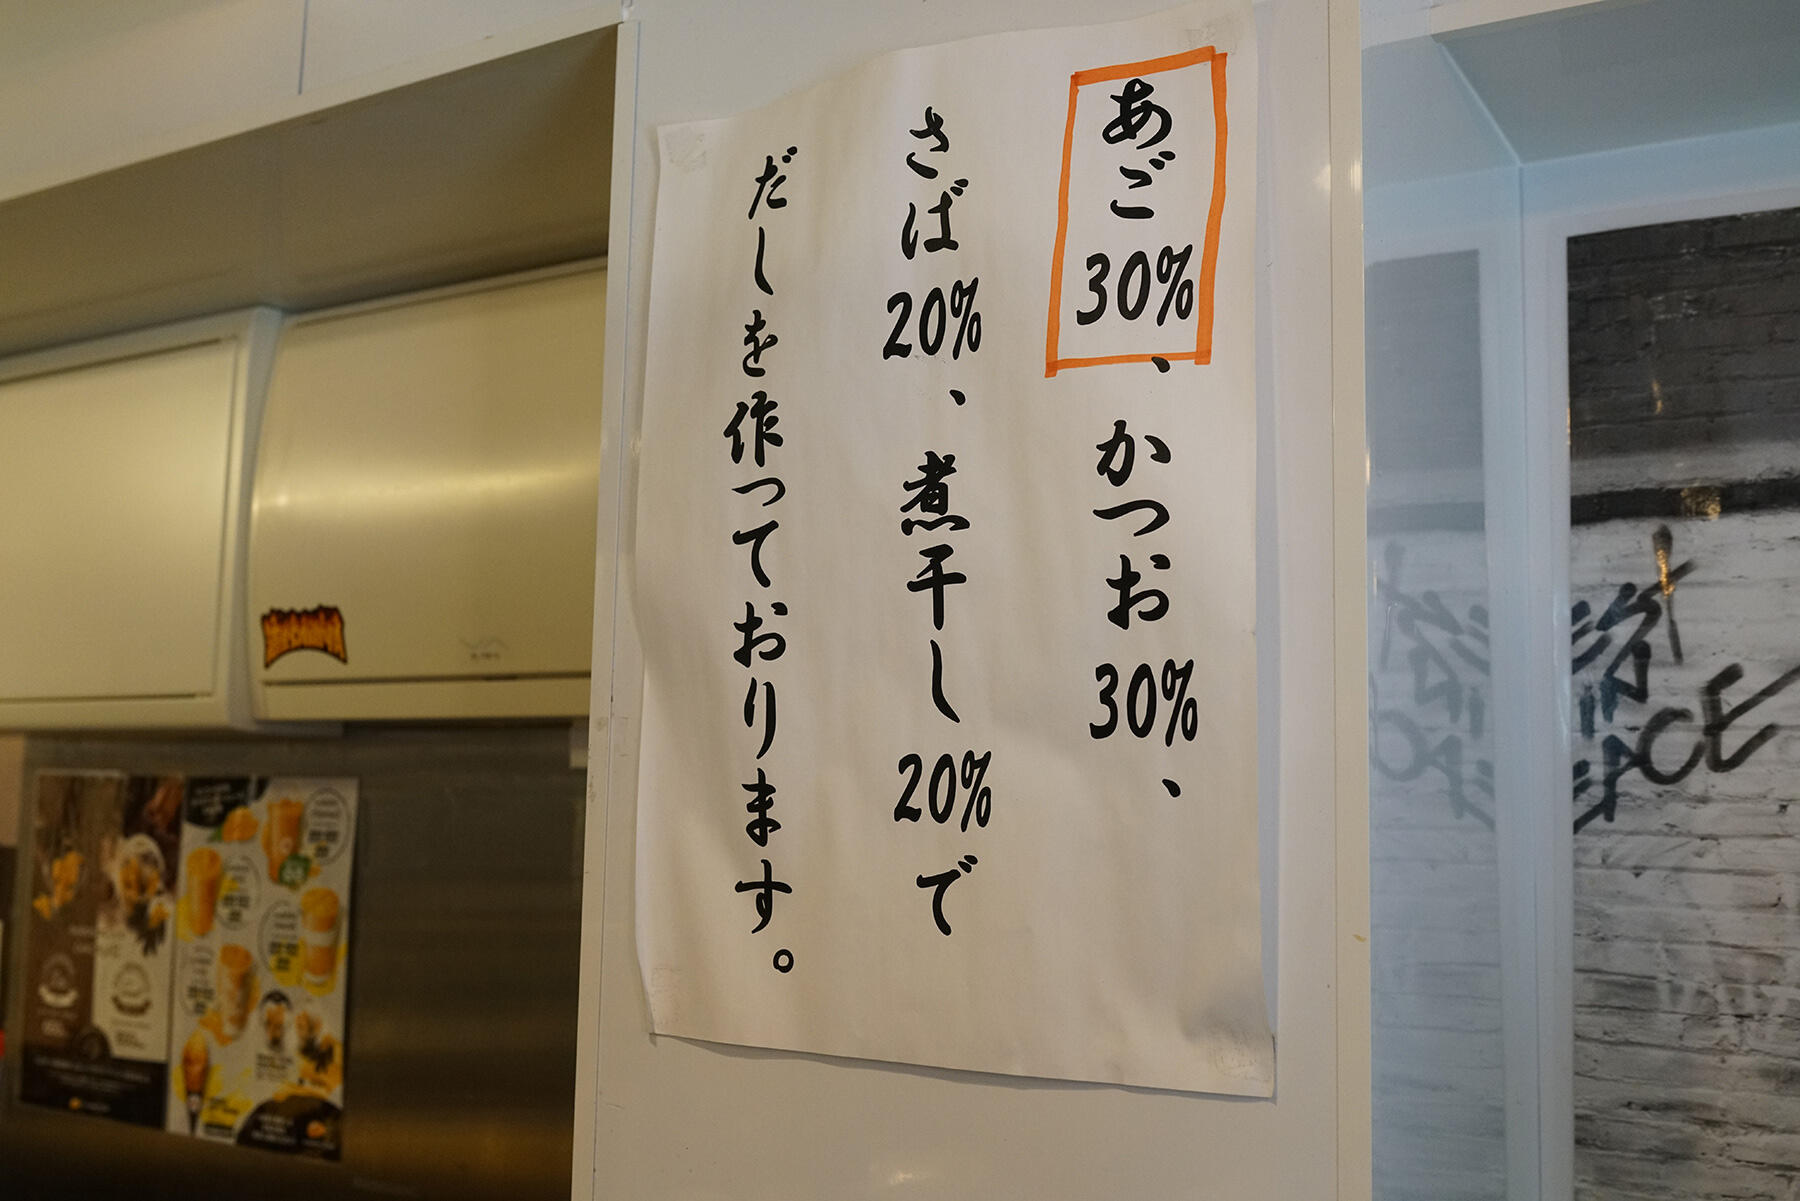 あご30%、かつお30%、
さば20%、煮干し20%で
だしを作っております。